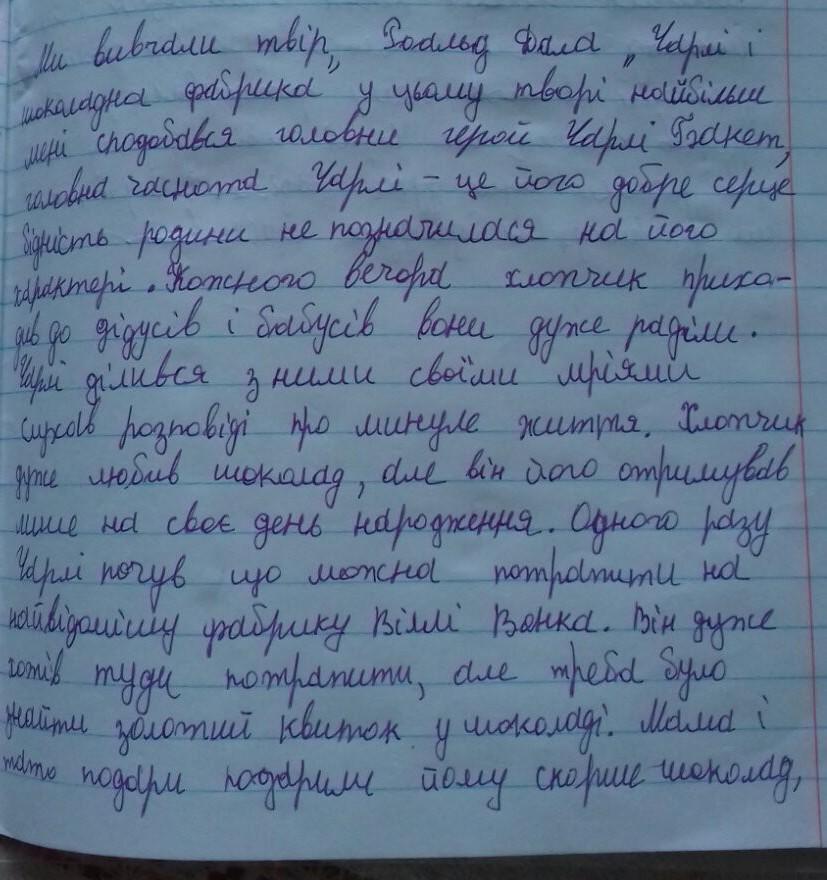 Ми вивчали твір„ Роальд Дала „Чарлі і
шоколадна фабрика" у цьому творі найбільш
мені сподобався головни герой Чарлі Бакет,
головна часнота Чарлі - це його добре серце
бідність родини не позначилася на його
характері. Кожного вечора хлопчик прихо-
див до дідусів і бабусів вони дуже раділи.
Чарлі ділився з ними своїми мріями
слухав розповіді про минуле життя. Хлопчик
дуже любив шоколад, але він його отримував
лише на своє день народження. Одного разу
Чарлі почув що можна потрапити на
найвідомішу фабрику Віллі Вонка. Він дуже
хотів туди потрапити, але треба було
знайти золотий квиток у шоколаді. Мама і
тато подари подарили йому скорше шоколад,